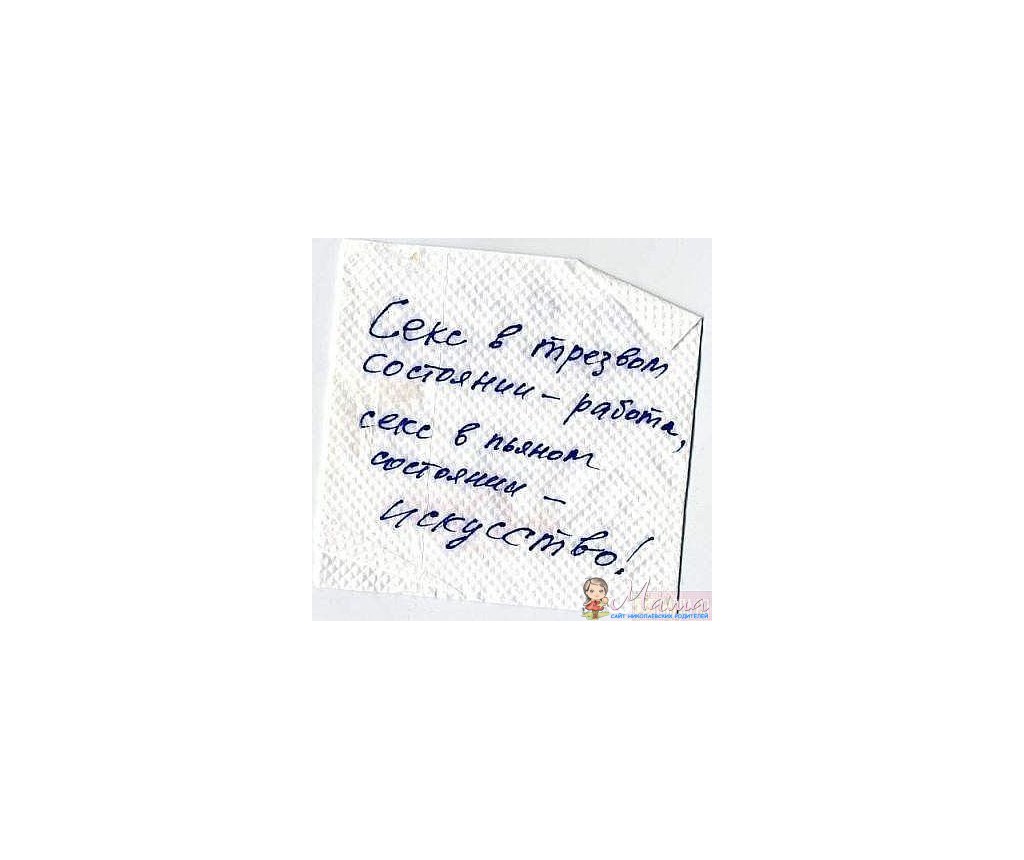 Секс в трезвом
состоянии - работа,
секс в пьяном
состоянии -
искусство!
Маша
САЙТ НИКОЛАЕВСКИХ РОДИТЕЛЕЙ